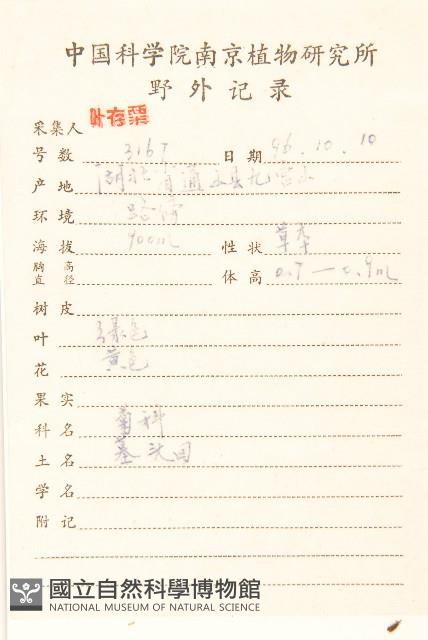 中国科学院南京植物研究所
野外记录
采集人 叶存粟
号数 3167 日期 96.10.10
产地 湖北省通山县九宫山
环境 路旁
海拔 900m 性状 草本
胸高直径 体高 0.7—0.9m
树皮
叶 绿色
花 黄色
果实
科名 菊科
土名 墓头回
学名
附记
國立自然科學博物館
NATIONAL MUSEUM OF NATURAL SCIENCE